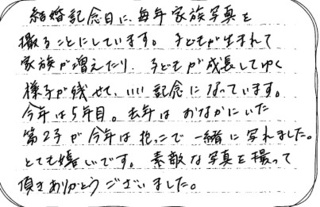 結婚記念日に、毎年家族写真を
撮ることにしています。子どもが生まれて
家族が増えたり、子どもが成長してゆく
様子が残せて、いい記念になっています。
今年は5年目。去年はおなかにいた
第2子が今年は抱っこで一緒に写れました。
とても嬉しいです。素敵な写真を撮って
頂きありがとうございました。